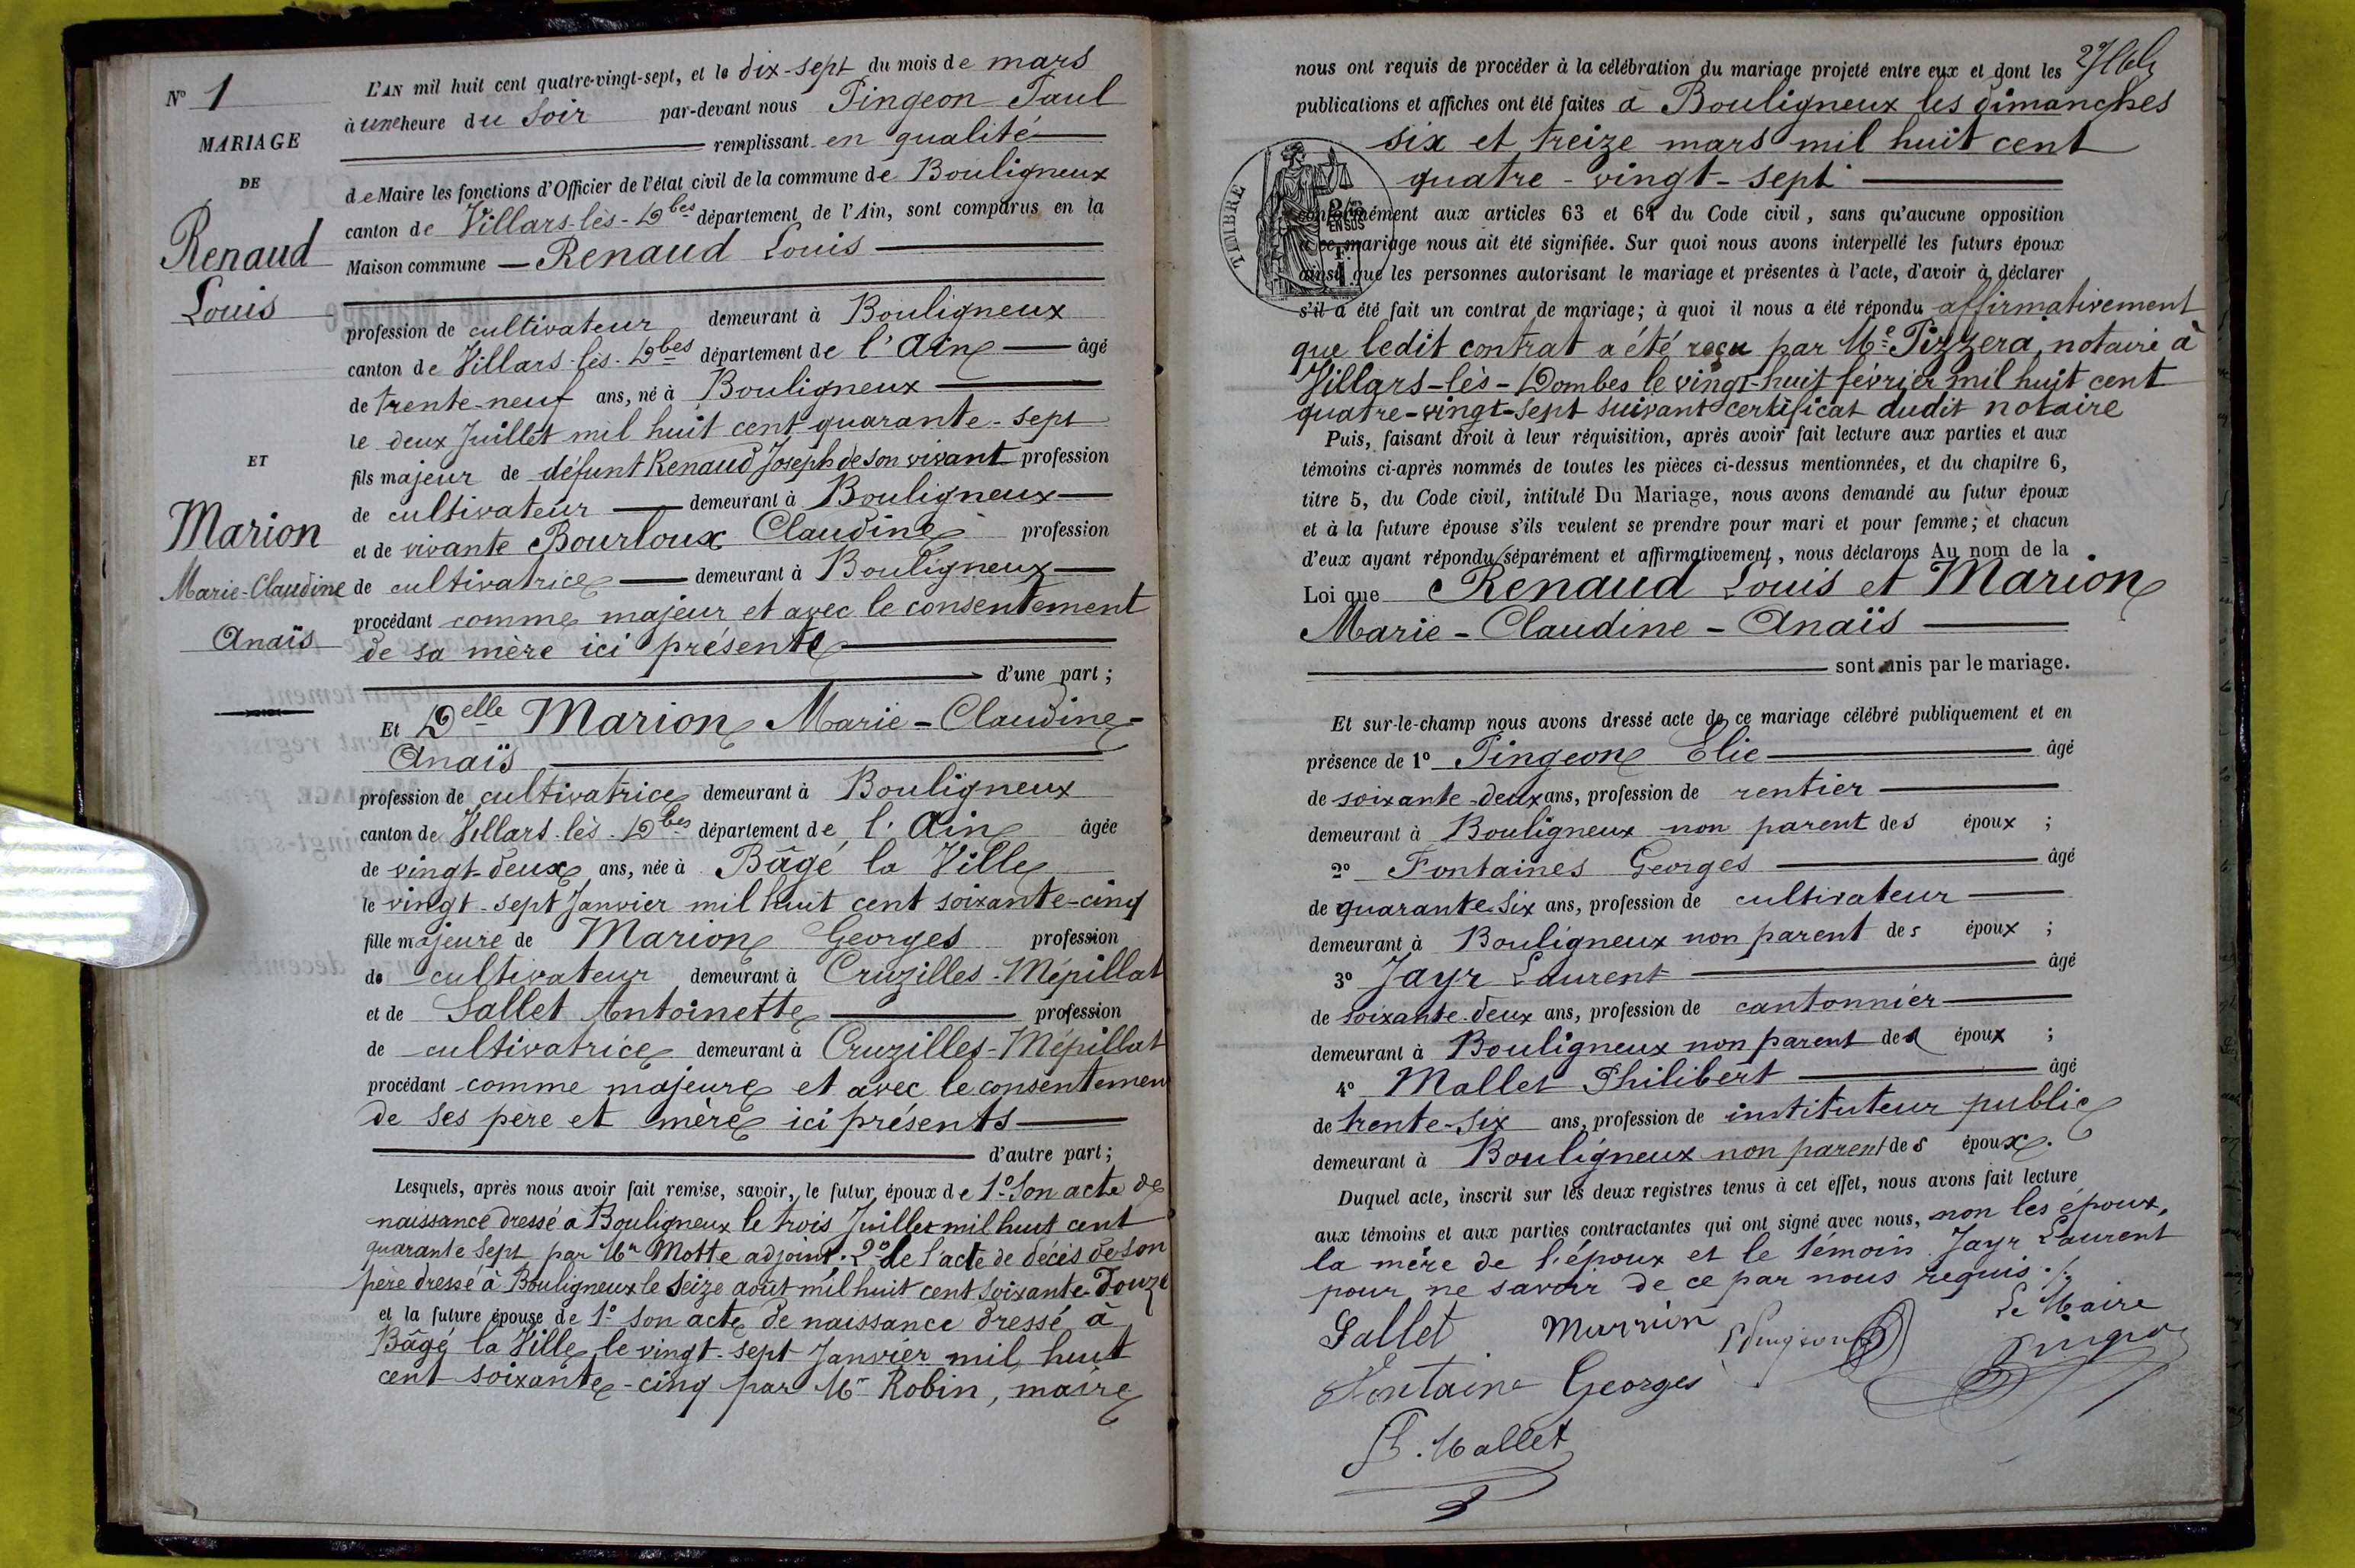 N° 1
MARIAGE
DE
Renaud
Louis
ET
Marion
Marie-Claudine
Anaïs
L'AN mil huit cent quatre-vingt-sept, et le dix-sept du mois de mars
à une heure du soir par-devant nous Pingeon Paul
remplissant en qualité
de Maire les fonctions d'Officier de l'état civil de la commune de Bouligneux
canton de Villars-lès-Dbes département de l'Ain, sont comparus en la
Maison commune — Renaud Louis
profession de cultivateur demeurant à Bouligneux
canton de Villars-lès-Dbes département de l'Ain âgé
de trente-neuf ans, né à Bouligneux
le deux Juillet mil huit cent quarante-sept
fils majeur de défunt Renaud Joseph de son vivant profession
de cultivateur demeurant à Bouligneux
et de vivante Bourloux Claudine profession
de cultivatrice demeurant à Bouligneux
procédant comme majeur et avec le consentement
de sa mère ici présente
d'une part ;
Et Delle Marion Marie-Claudine-
Anaïs
profession de cultivatrice demeurant à Bouligneux
canton de Villars-lès-Dbes département de l'Ain âgée
de vingt-deux ans, née à Bâgé la Ville
le vingt-sept Janvier mil huit cent soixante-cinq
fille majeure de Marion Georges profession
de cultivateur demeurant à Cruzilles-Mépillat
et de Sallet Antoinette profession
de cultivatrice demeurant à Cruzilles-Mépillat
procédant comme majeure et avec le consentemen
de ses père et mère ici présents
d'autre part ;
Lesquels, après nous avoir fait remise, savoir, le futur époux de 1° Son acte de
naissance dressé à Bouligneux le trois Juillet mil huit cent
quarante sept par Mr Motte adjoint. 2° de l'acte de décès de son
père dressé à Bouligneux le seize août mil huit cent soixante-douze
et la future épouse de 1° son acte de naissance dressé à
Bâgé la Ville le vingt-sept Janvier mil huit
cent soixante-cinq par Mr Robin, maire
nous ont requis de procéder à la célébration du mariage projeté entre eux et dont les
publications et affiches ont été faites à Bouligneux les dimanches
six et treize mars mil huit cent
quatre-vingt-sept
TIMBRE
EN SUS
conformément aux articles 63 et 64 du Code civil, sans qu'aucune opposition
à ce mariage nous ait été signifiée. Sur quoi nous avons interpellé les futurs époux
ainsi que les personnes autorisant le mariage et présentes à l'acte, d'avoir à déclarer
s'il a été fait un contrat de mariage ; à quoi il nous a été répondu affirmativement
que ledit contrat a été reçu par Me Pizzera, notaire à
Villars-lès-Dombes le vingt-huit février mil huit cent
quatre-vingt-sept suivant certificat dudit notaire
Puis, faisant droit à leur réquisition, après avoir fait lecture aux parties et aux
témoins ci-après nommés de toutes les pièces ci-dessus mentionnées, et du chapitre 6,
titre 5, du Code civil, intitulé Du Mariage, nous avons demandé au futur époux
et à la future épouse s'ils veulent se prendre pour mari et pour femme ; et chacun
d'eux ayant répondu séparément et affirmativement, nous déclarons Au nom de la
Loi que Renaud Louis et Marion
Marie-Claudine-Anaïs
sont unis par le mariage.
Et sur-le-champ nous avons dressé acte de ce mariage célébré publiquement et en
présence de 1° Pingeon Elie âgé
de soixante-deux ans, profession de rentier
demeurant à Bouligneux non parent des époux ;
2° Fontaines Georges âgé
de quarante-six ans, profession de cultivateur
demeurant à Bouligneux non parent des époux ;
3° Jayr Laurent âgé
de soixante-deux ans, profession de cantonnier
demeurant à Bouligneux non parent des époux ;
4° Mallet Philibert âgé
de trente-six ans, profession de instituteur public
demeurant à Bouligneux non parent des époux.
Duquel acte, inscrit sur les deux registres tenus à cet effet, nous avons fait lecture
aux témoins et aux parties contractantes qui ont signé avec nous, non les époux,
la mère de l'époux et le témoin Jayr Laurent
pour ne savoir de ce par nous requis ./.
Le Maire
Sallet Marrion EPingeon Pingeon
Fontaine Georges
P. Mallet